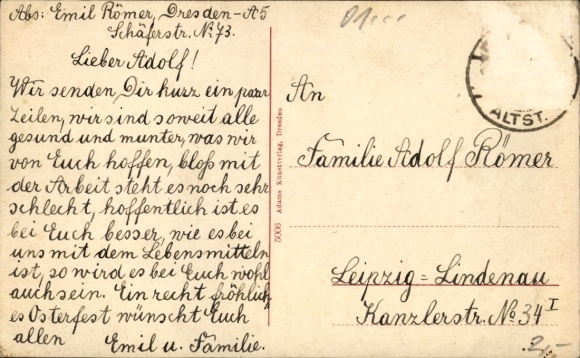 Abs: Emil Römer, Dresden-A5
Schäferstr. No 73.
Lieber Adolf!
Wir senden Dir kurz ein paar
Zeilen, wir sind soweit alle
gesund und munter, was wir
von Euch hoffen, bloß mit
der Arbeit steht es noch sehr
schlecht, hoffentlich ist es
bei Euch besser, wie es bei
uns mit dem Lebensmitteln
ist, so wird es bei Euch wohl
auch sein. Ein recht fröhlich
es Osterfest wünscht Euch
allen Emil u. Familie.
5006 Adams Kunstverlag, Dresden
ALTST.
An
Familie Adolf Römer
Leipzig=Lindenau
Kanzlerstr. No 34 I
2,-